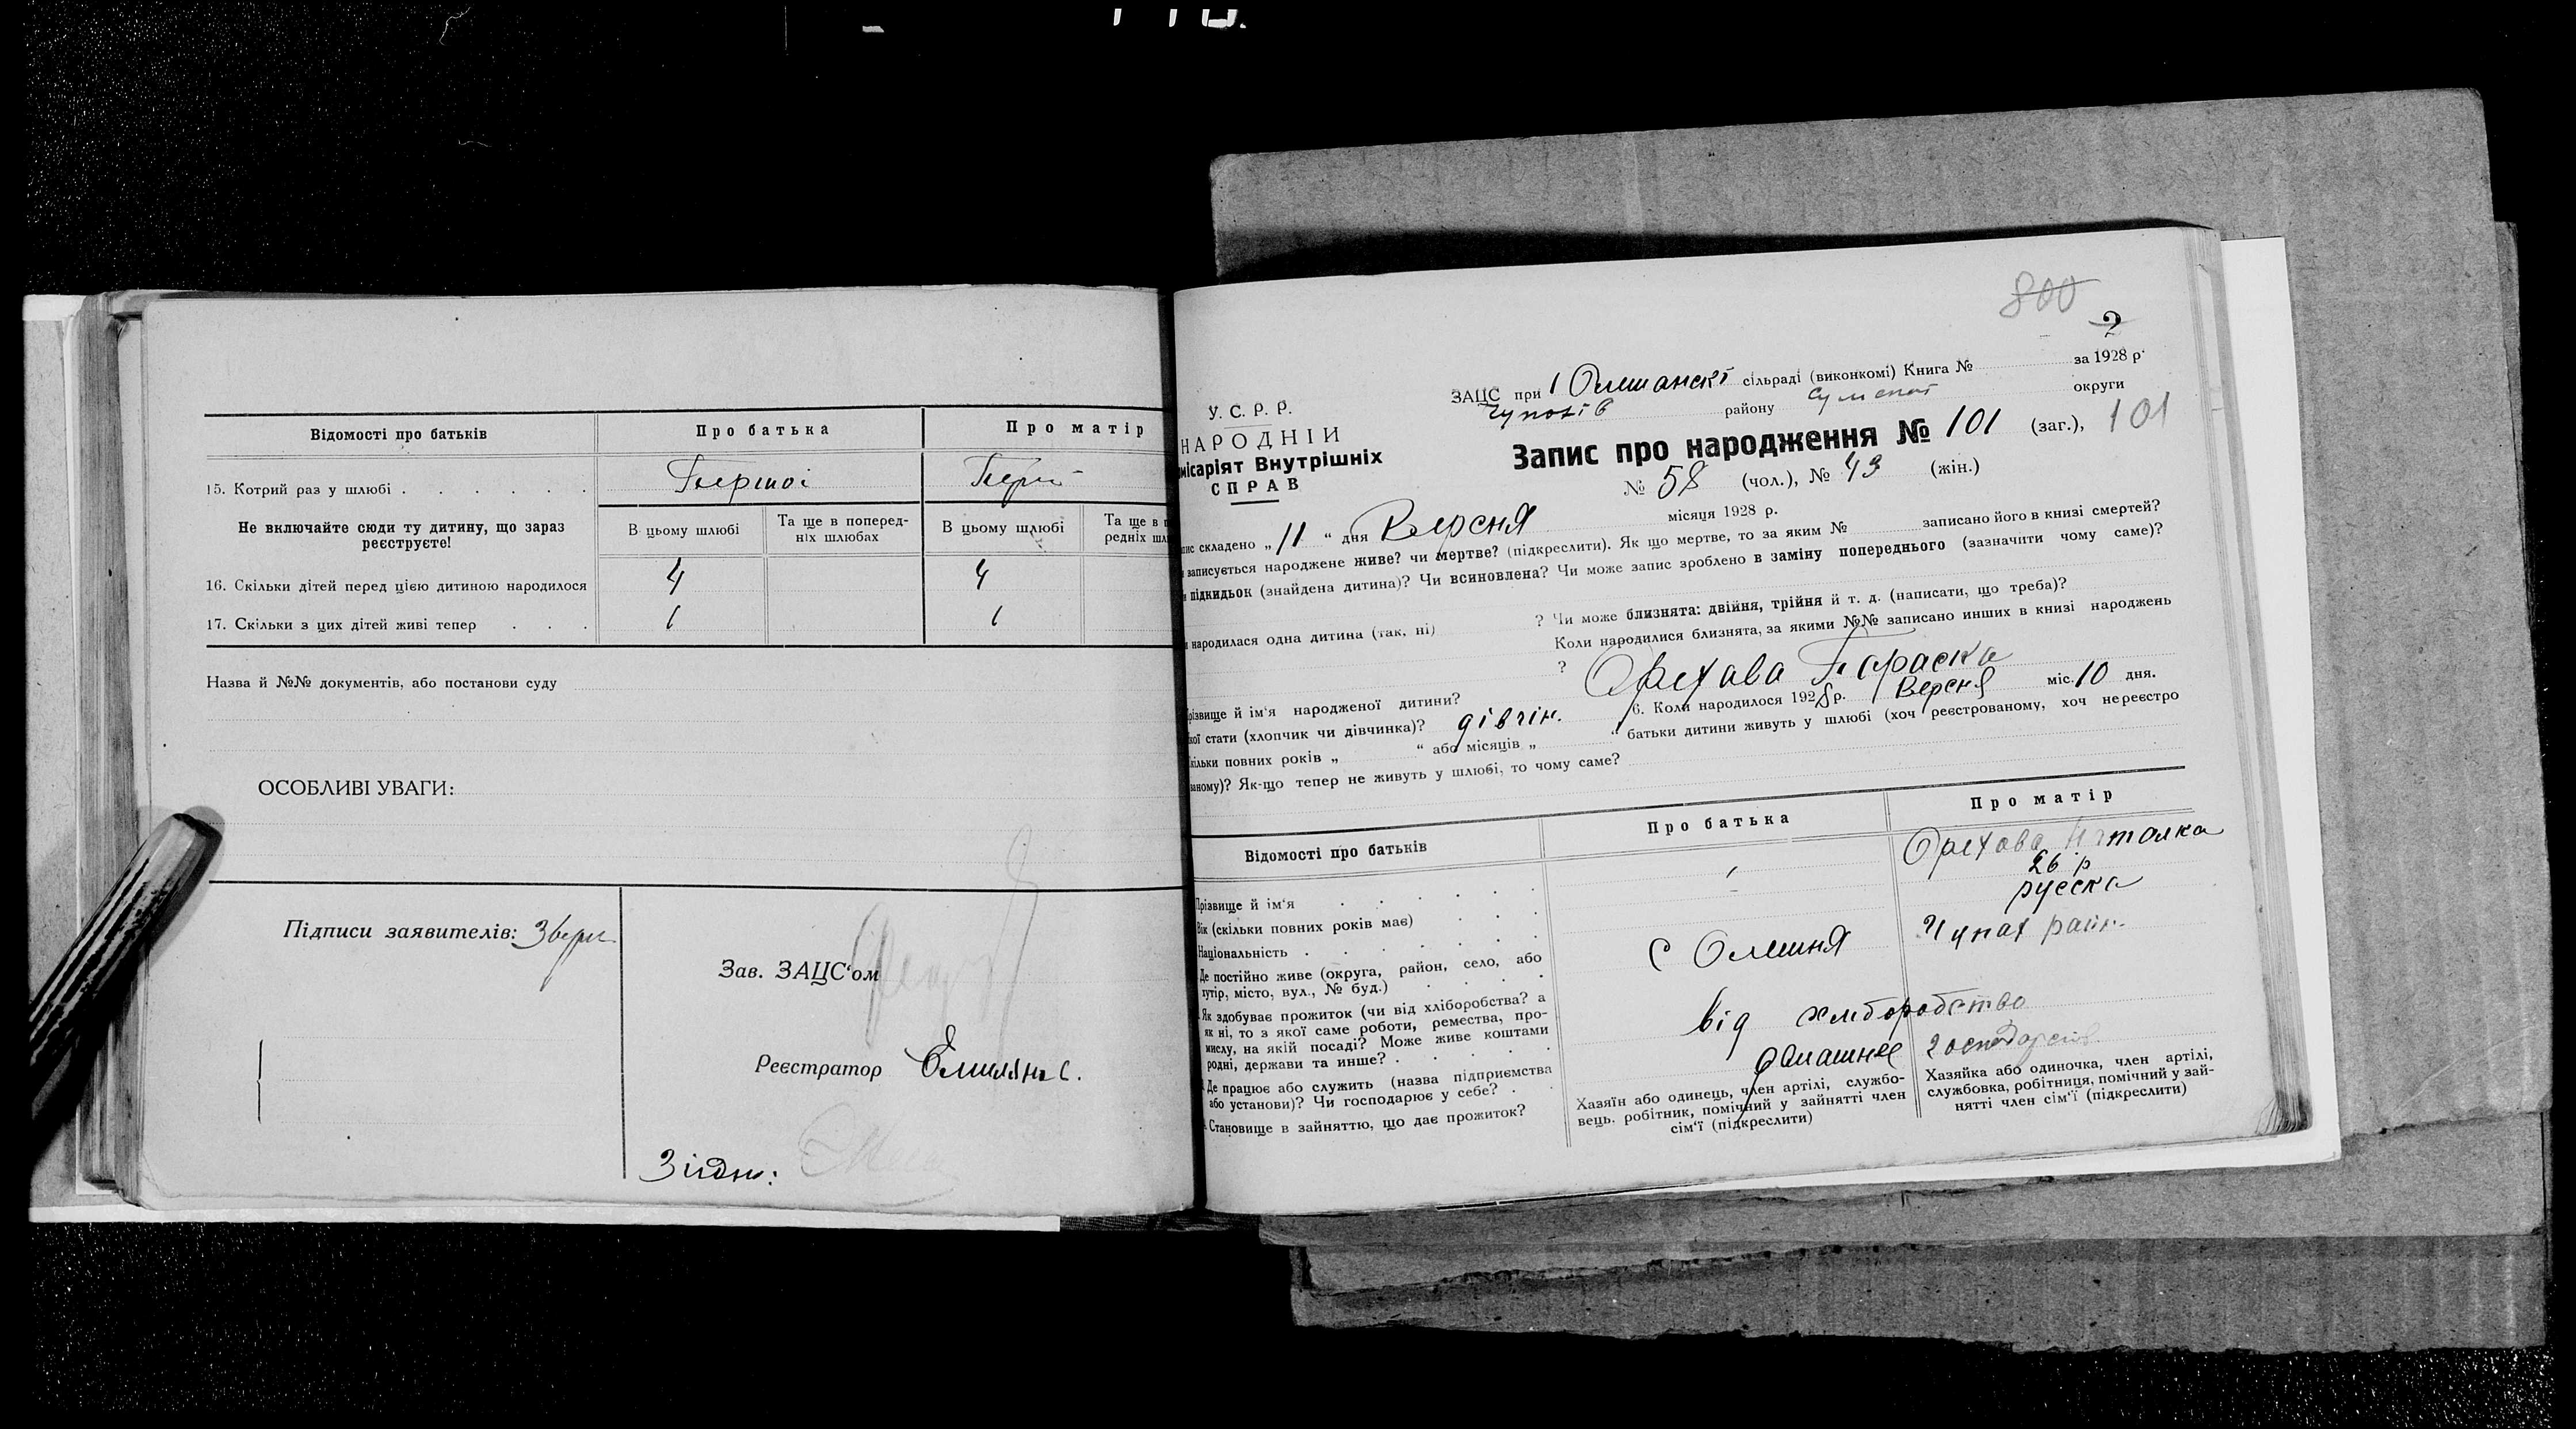 Відомості про батьків
Про батька
Про матір
15. Котрий раз у шлюбі
Першої
Перш
Не включайте сюди ту дитину, що зараз
реєструєте!
В цьому шлюбі
Та ще в поперед-
ніх шлюбах
В цьому шлюбі
Та ще в п
редніх шл
16. Скільки дітей перед цією дитиною народилося
4
4
17. Скільки з цих дітей живі тепер
1
1
Назва й №№ документів, або постанови суду
ОСОБЛИВІ УВАГИ:
Підписи заявителів:
Зав. ЗАЦС'ом
Реєстратор
Згідно:
800
2
У. С. Р. Р.
НАРОДНІЙ
місаріят Внутрішніх
СПРАВ
ЗАЦС при 1 Олешанскі сільраді (виконкомі) Книга № за 1928 р.
району Сумскої округи
Запис про народження № 101 (заг.), 101
№ 58 (чол.), № 43 (жін.)
пис складено „ 11 “ дня Версня місяця 1928 р.
записується народжене живе? чи мертве? (підкреслити). Як що мертве, то за яким № записано його в книзі смертей?
підкидьок (знайдена дитина)? Чи всиновлена? Чи може запис зроблено в заміну попереднього (зазначити чому саме)?
народилася одна дитина (так, ні) ? Чи може близнята: двійня, трійня й т. д. (написати, що треба)?
Коли народилися близнята, за якими №№ записано инших в книзі народжень
?
різвище й ім'я народженої дитини? Орєхава Параска
кої стати (хлопчик чи дівчинка)? дівчін. 6. Коли народилося 1928 р. Версня міс. 10 дня.
кільки повних років „ “ або місяців „ “ батьки дитини живуть у шлюбі (хоч реєстрованому, хоч нереєстро
ваному)? Як-що тепер не живуть у шлюбі, то чому саме?
Відомості про батьків
Про батька
Про матір
Прізвище й ім'я
Орєхова Наталка
Вік (скільки повних років має)
26 р
Національність
руска
Де постійно живе (округа, район, село, або
хутір, місто, вул., № буд.)
с Олешня
Чупах райн.
Як здобуває прожиток (чи від хліборобства? а
як ні, то з якої саме роботи, ремества, про-
мислу, на якій посаді? Може живе коштами
родні, держави та инше?
від хліборобство
Де працює або служить (назва підприємства
або установи)? Чи господарює у себе?
домашнєе
Становище в зайняттю, що дає прожиток?
Хазяїн або одинець, член артілі, службо-
вець, робітник, помічний у зайнятті член
сім'ї (підкреслити)
Хазяйка або одиночка, член артілі,
службовка, робітниця, помічний у зай-
нятті член сім'ї (підкреслити)